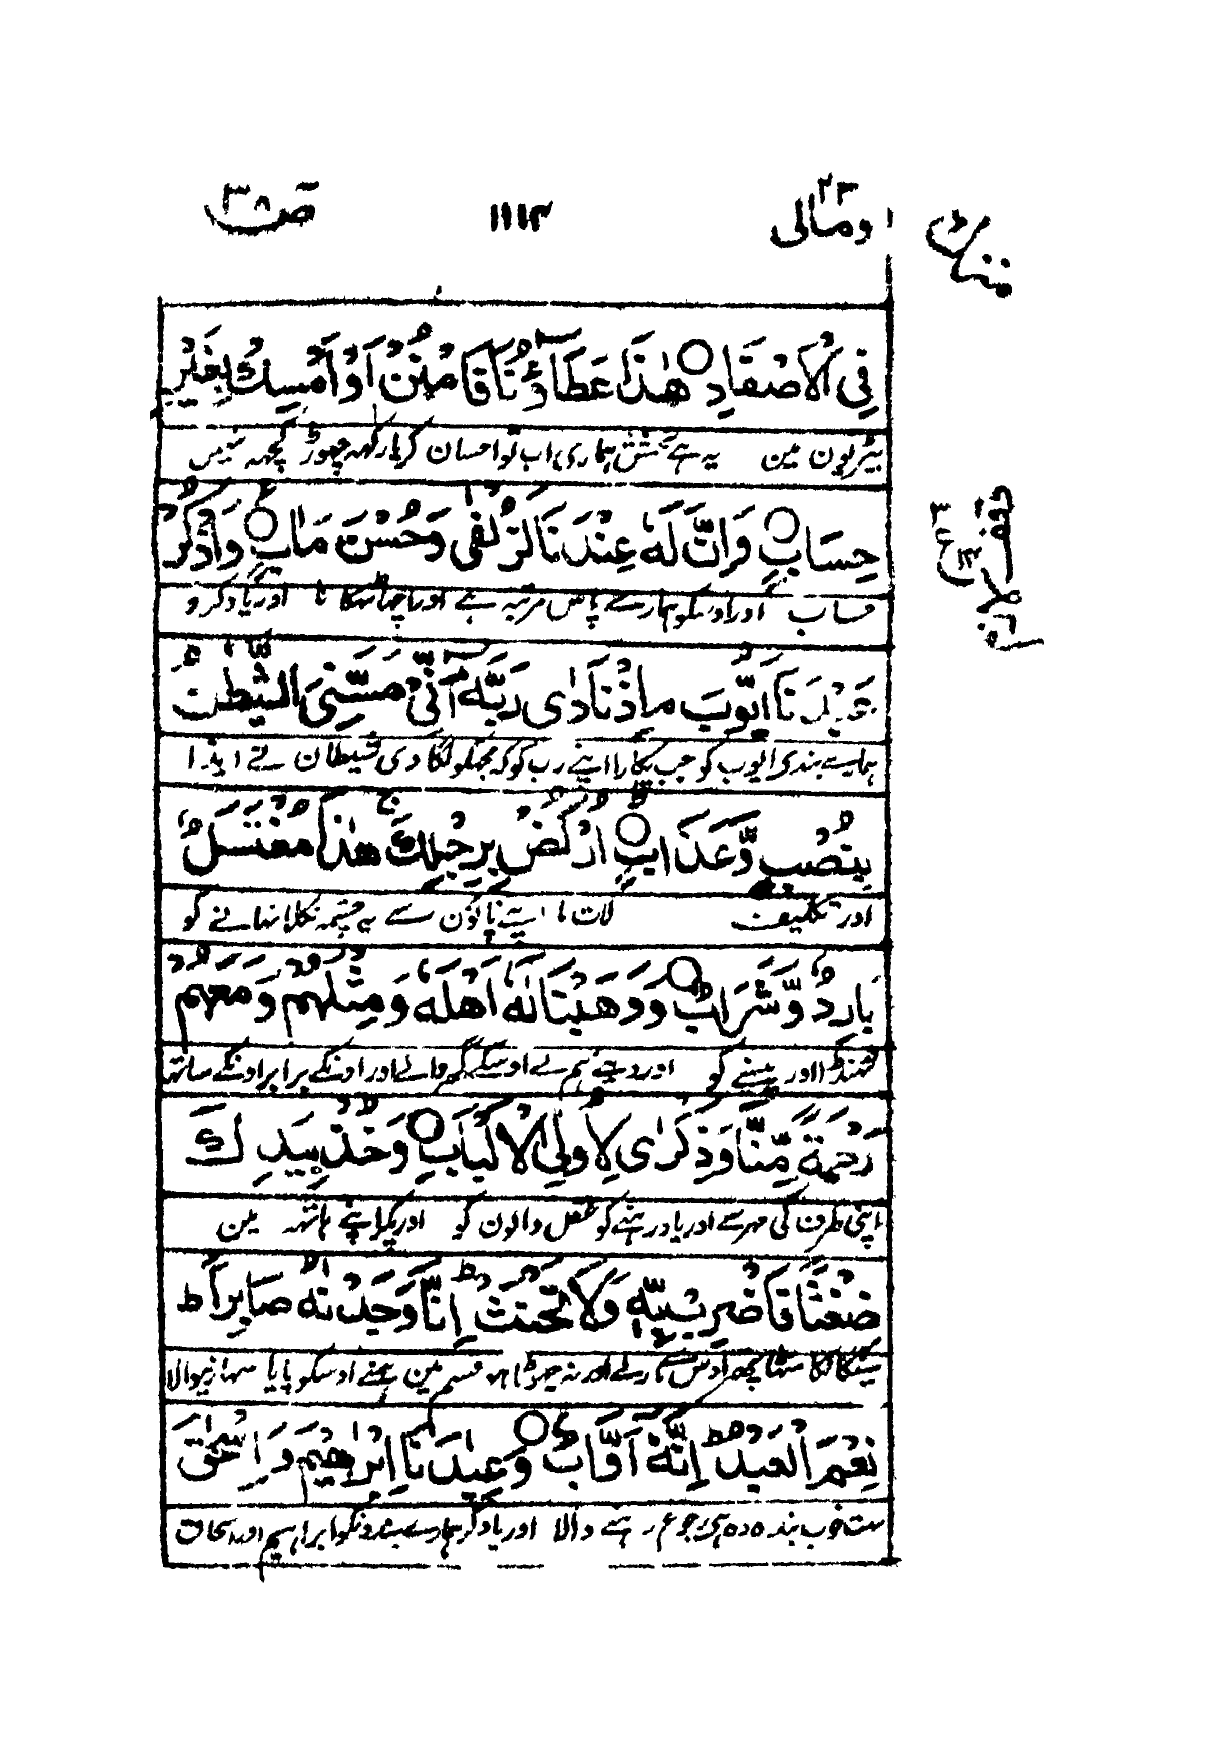 ومالی ٢٣ ١١١٤ صٓ ٣٨
فِی الْاَصْفَادِ ○ هٰذَا عَطَآؤُنَا فَامْنُنْ اَوْ اَمْسِكْ بِغَیْرِ
بیڑیون مین یہ ہے بخشش ہماری اب تو احسان کر یا رکھہ چھوڑ کچھہ نہیں
حِسَابٍ ○ وَاِنَّ لَهٗ عِنْدَنَا لَزُلْفٰی وَحُسْنَ مَاٰبٍ ○ ع وَاذْكُرْ
حساب اور اوسکو ہمارے پاس مرتبہ ہے اور اچھا ٹھکانا اور یاد کرو
عَبْدَنَا اَیُّوْبَ م اِذْ نَادٰی رَبَّهٗٓ اَنِّیْ مَسَّنِیَ الشَّیْطٰنُ
ہمارے بندی ایوب کو جب پکارا اپنے رب کو کہ مجھکو لگا دی شیطان نے ایذا
بِنُصْبٍ وَّعَذَابٍ ○ ط اُرْكُضْ بِرِجْلِكَ ج هٰذَا مُغْتَسَلٌۢ
اور تکلیف لات مار اپنے پاؤن سے یہ چشمہ نکلا نہانے کو
بَارِدٌ وَّشَرَابٌ ○ وَوَهَبْنَا لَهٗٓ اَهْلَهٗ وَمِثْلَهُمْ مَّعَهُمْ
ٹھنڈا اور پینے کو اور دیے ہم نے اوسکے گھر والے اور اونکے برابر اونکے ساتھ
رَحْمَةً مِّنَّا وَذِكْرٰی لِاُولِی الْاَلْبَابِ ○ وَخُذْ بِیَدِكَ
اپنی طرف کی مہر سے اور یاد رہنے کو عقل والون کو اور پکڑ اپنے ہاتھہ مین
ضِغْثًا فَاضْرِبْ بِّهٖ وَلَا تَحْنَثْ ط اِنَّا وَجَدْنٰهُ صَابِرًا ط
سینکا کا مٹھا پھر اوس سے مار لے اور نہ جھوٹا ہو قسم مین ہمنے اوسکو پایا سہارنیوالا
نِعْمَ الْعَبْدُ ط اِنَّهٗٓ اَوَّابٌ ○ وَاذْكُرْ عِبٰدَنَآ اِبْرٰهِیْمَ وَاِسْحٰقَ
بہت خوب بندہ وہ ہی رجوع رہنے والا اور یاد کر ہمارے بندونکو ابراہیم اور اسحاق